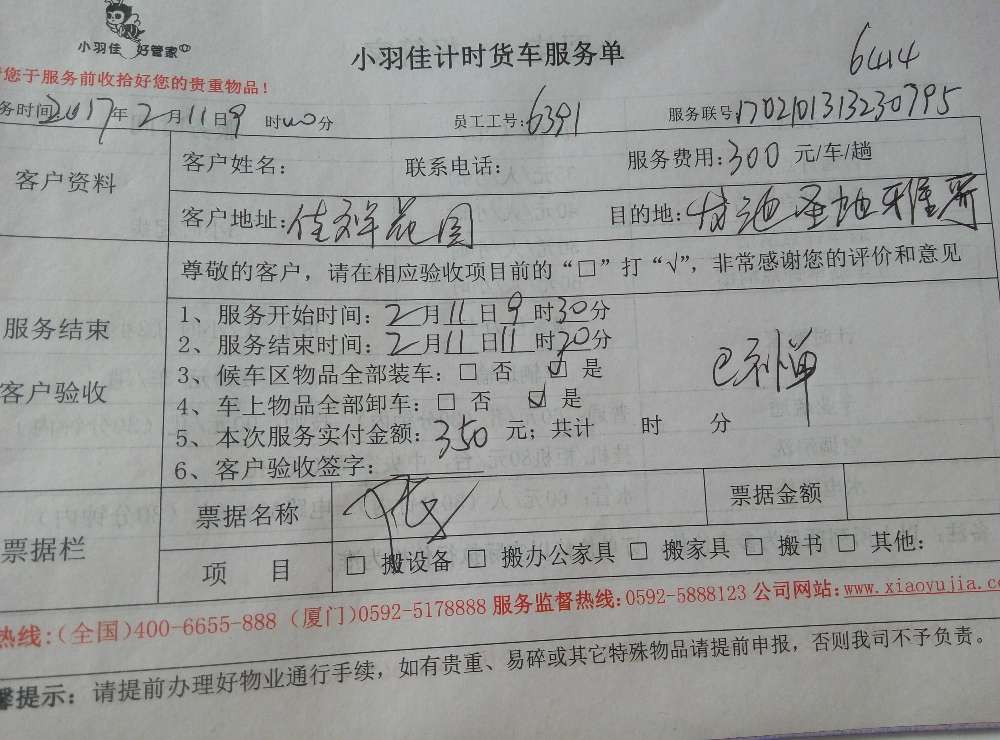 小羽佳 好管家
小羽佳计时货车服务单
6414
您于服务前收拾好您的贵重物品！
务时间 2017年2月11日9时00分 员工工号：6391 服务联号 1702101313230795
客户资料 客户姓名： 联系电话： 服务费用：300 元/车/趟
客户地址：佳祥花园 目的地：圣地雅
尊敬的客户，请在相应验收项目前的“□”打“√”，非常感谢您的评价和意见
服务结束
客户验收
1、服务开始时间：2月11日9时30分
2、服务结束时间：2月11日11时20分
3、候车区物品全部装车：□ 否 ☑ 是
4、车上物品全部卸车：□ 否 ☑ 是
已补单
5、本次服务实付金额：350 元；共计 时 分
6、客户验收签字：
票据栏 票据名称 票据金额
项 目 □ 搬设备 □ 搬办公家具 □ 搬家具 □ 搬书 □ 其他：
热线：（全国）400-6655-888 （厦门）0592-5178888 服务监督热线：0592-5888123 公司网站：www.xiaoyujia.co
馨提示：请提前办理好物业通行手续，如有贵重、易碎或其它特殊物品请提前申报，否则我司不予负责。